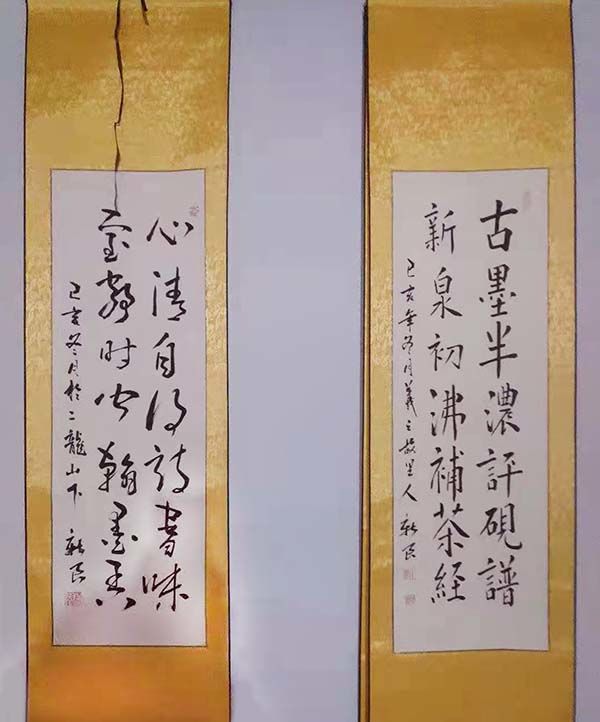 古墨半濃評硯譜
新泉初沸補茶経
己亥年冬月羲之故里人 新民
心清自得詩書味
室靜时闻翰墨香
己亥冬月於二龍山下 新民